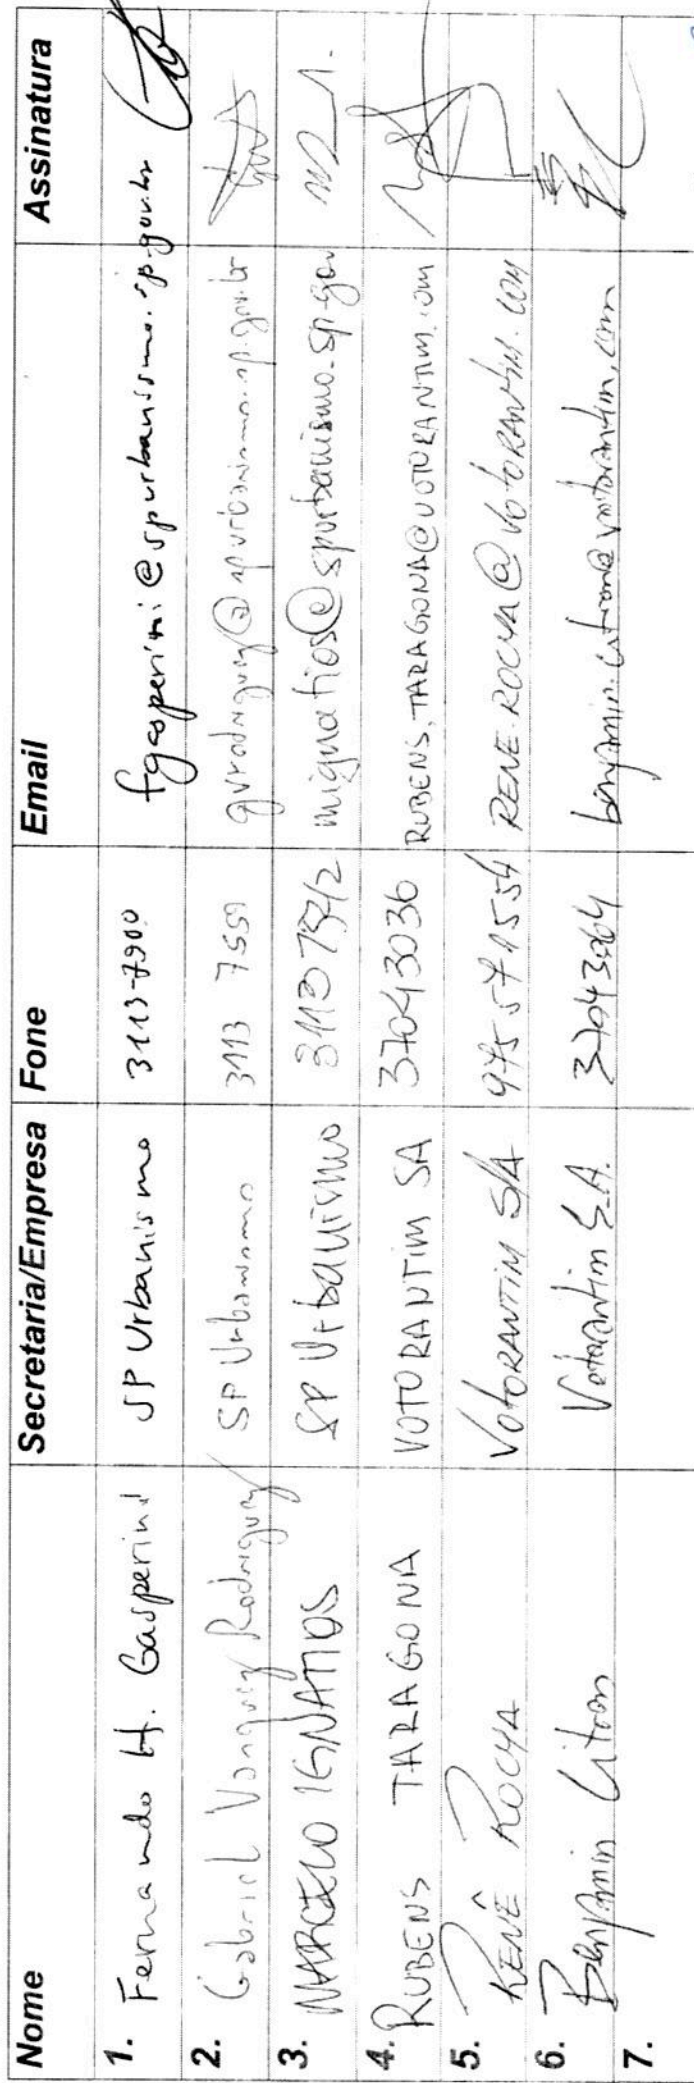 Nome Secretaria/Empresa Fone Email Assinatura
1. Fernando H. Gasperini SP Urbanismo 3113-7900 fgasperini@spurbanismo.sp.gov.br
2. Gabriel Vazquez Rodriguez SP Urbanismo 3113 7559 gvrodriguez@spurbanismo.sp.gov.br
3. MARCELO IGNATIOS SP Urbanismo mignatios@spurbanismo.sp.gov
4. RUBENS TARAGONA VOTORANTIM SA 37043036 RUBENS.TARAGONA@VOTORANTIM.COM
5. RENÊ ROCHA VOTORANTIM S/A RENE.ROCHA@VOTORANTIM.COM
6. Benjamin Citron Votorantim S.A. benjamin.citron@votorantim.com
7.